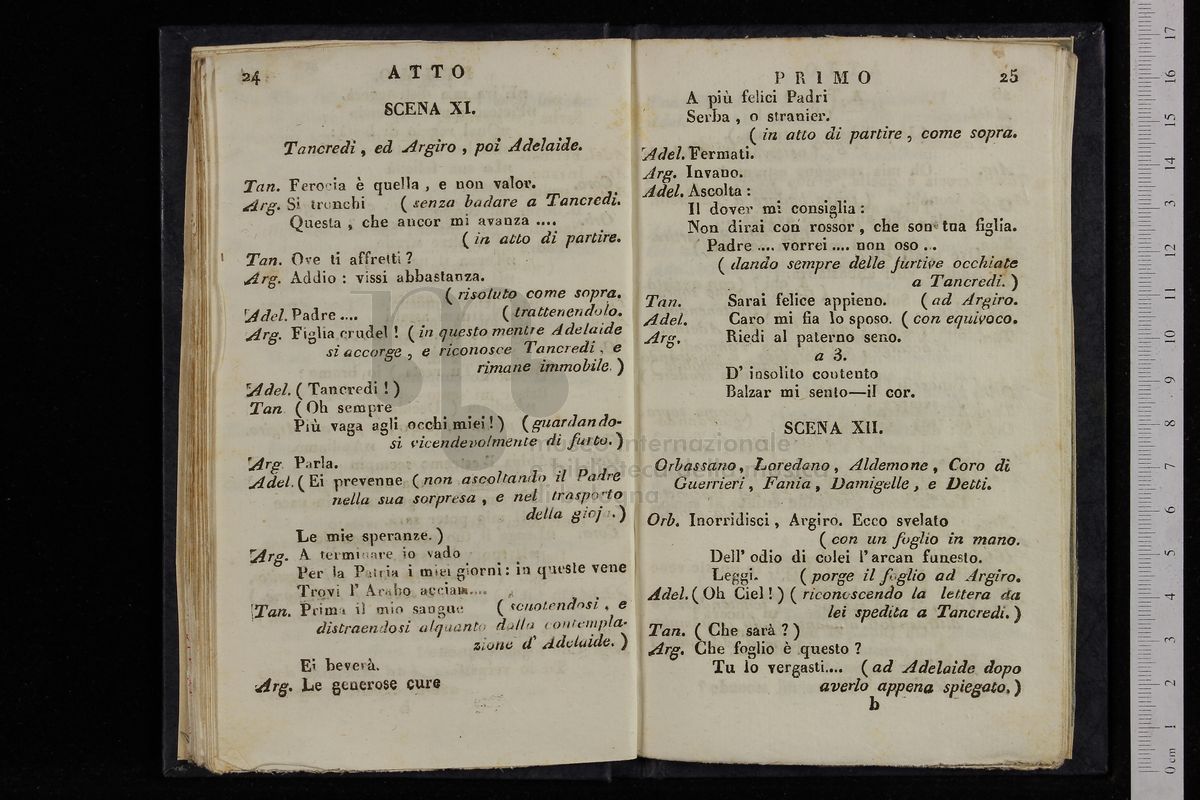 24
ATTO
SCENA XI.
Tancredi, ed Argiro, poi Adelaide.
Tan. Ferocia è quella, e non valor.
Arg. Si tronchi (senza badare a Tancredi.
Questa, che ancor mi avanza ....
(in atto di partire.
Tan. Ove ti affretti?
Arg. Addio: vissi abbastanza.
(risoluto come sopra.
Adel. Padre .... (trattenendolo.
Arg. Figlia crudel! (in questo mentre Adelaide
si accorge, e riconosce Tancredi, e
rimane immobile.)
Adel. (Tancredi!)
Tan (Oh sempre
Più vaga agli occhi miei!) (guardando-
si vicendevolmente di furto.)
Arg. Parla.
Adel. (Ei prevenne (non ascoltando il Padre
nella sua sorpresa, e nel trasporto
della gioja.)
Le mie speranze.)
Arg. A terminare io vado
Per la Patria i miei giorni: in queste vene
Trovi l' Arabo acciar....
Tan. Prima il mio sangue (scuotendosi, e
distraendosi alquanto dalla contempla-
zione d' Adelaide.)
Ei beverà.
Arg. Le generose cure
PRIMO
25
A più felici Padri
Serba, o stranier.
(in atto di partire, come sopra.
Adel. Fermati.
Arg. Invano.
Adel. Ascolta:
Il dover mi consiglia:
Non dirai con rossor, che son tua figlia.
Padre .... vorrei .... non oso ..
(dando sempre delle furtive occhiate
a Tancredi.)
Tan. Sarai felice appieno. (ad Argiro.
Adel. Caro mi fia lo sposo. (con equivoco.
Arg. Riedi al paterno seno.
a 3.
D' insolito contento
Balzar mi sento—il cor.
SCENA XII.
Orbassano, Loredano, Aldemone, Coro di
Guerrieri, Fania, Damigelle, e Detti.
Orb. Inorridisci, Argiro. Ecco svelato
(con un foglio in mano.
Dell' odio di colei l' arcan funesto.
Leggi. (porge il foglio ad Argiro.
Adel. (Oh Ciel!) (riconoscendo la lettera da
lei spedita a Tancredi.)
Tan. (Che sarà?)
Arg. Che foglio è questo?
Tu lo vergasti.... (ad Adelaide dopo
averlo appena spiegato.)
b
museo internazionale
e biblioteca della musica
di bologna
0 cm 1 2 3 4 5 6 7 8 9 10 11 12 13 14 15 16 17